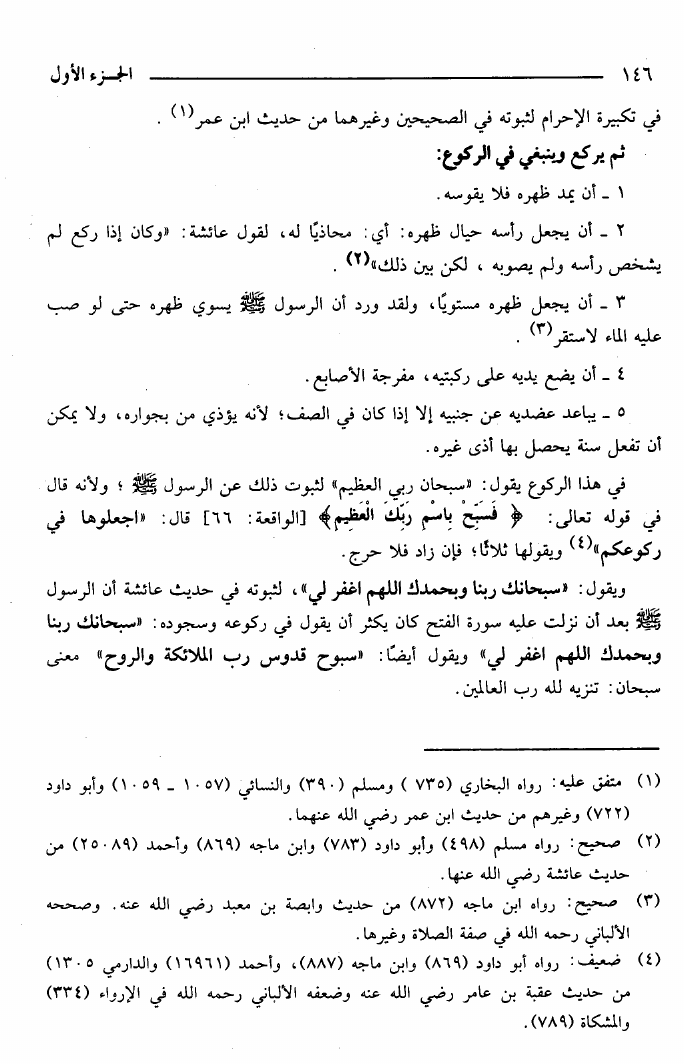 ١٤٦ الجـزء الأول
في تكبيرة الإحرام لثبوته في الصحيحين وغيرهما من حديث ابن عمر(١) .
ثم يركع وينبغي في الركوع:
١ ـ أن يمد ظهره فلا يقوسه.
٢ ـ أن يجعل رأسه حيال ظهره: أي: محاذيًا له، لقول عائشة: «وكان إذا ركع لم
يشخص رأسه ولم يصوبه ، لكن بين ذلك»(٢) .
٣ ـ أن يجعل ظهره مستويًا، ولقد ورد أن الرسول ﷺ يسوي ظهره حتى لو صب
عليه الماء لاستقر(٣) .
٤ ـ أن يضع يديه على ركبتيه، مفرجة الأصابع.
٥ ـ يباعد عضديه عن جنبيه إلا إذا كان في الصف؛ لأنه يؤذي من بجواره، ولا يمكن
أن تفعل سنة يحصل بها أذى غيره.
في هذا الركوع يقول: «سبحان ربي العظيم» لثبوت ذلك عن الرسول ﷺ ؛ ولأنه قال
في قوله تعالى: ﴿ فَسَبِّحْ بِاسْمِ رَبِّكَ الْعَظِيمِ﴾ [الواقعة: ٦٦] قال: «اجعلوها في
ركوعكم»(٤) ويقولها ثلاثًا؛ فإن زاد فلا حرج.
ويقول: «سبحانك ربنا وبحمدك اللهم اغفر لي»، لثبوته في حديث عائشة أن الرسول
ﷺ بعد أن نزلت عليه سورة الفتح كان يكثر أن يقول في ركوعه وسجوده: «سبحانك ربنا
وبحمدك اللهم اغفر لي» ويقول أيضًا: «سبوح قدوس رب الملائكة والروح» معنى
سبحان: تنزيه لله رب العالمين.
(١) متفق عليه: رواه البخاري (٧٣٥ ) ومسلم (٣٩٠) والنسائي (١٠٥٧ ـ ١٠٥٩) وأبو داود
(٧٢٢) وغيرهم من حديث ابن عمر رضي الله عنهما.
(٢) صحيح: رواه مسلم (٤٩٨) وأبو داود (٧٨٣) وابن ماجه (٨٦٩) وأحمد (٢٥٠٨٩) من
حديث عائشة رضي الله عنها.
(٣) صحيح: رواه ابن ماجه (٨٧٢) من حديث وابصة بن معبد رضي الله عنه. وصححه
الألباني رحمه الله في صفة الصلاة وغيرها.
(٤) ضعيف: رواه أبو داود (٨٦٩) وابن ماجه (٨٨٧)، وأحمد (١٦٩٦١) والدارمي ١٣٠٥)
من حديث عقبة بن عامر رضي الله عنه وضعفه الألباني رحمه الله في الإرواء (٣٣٤)
والمشكاة (٧٨٩).